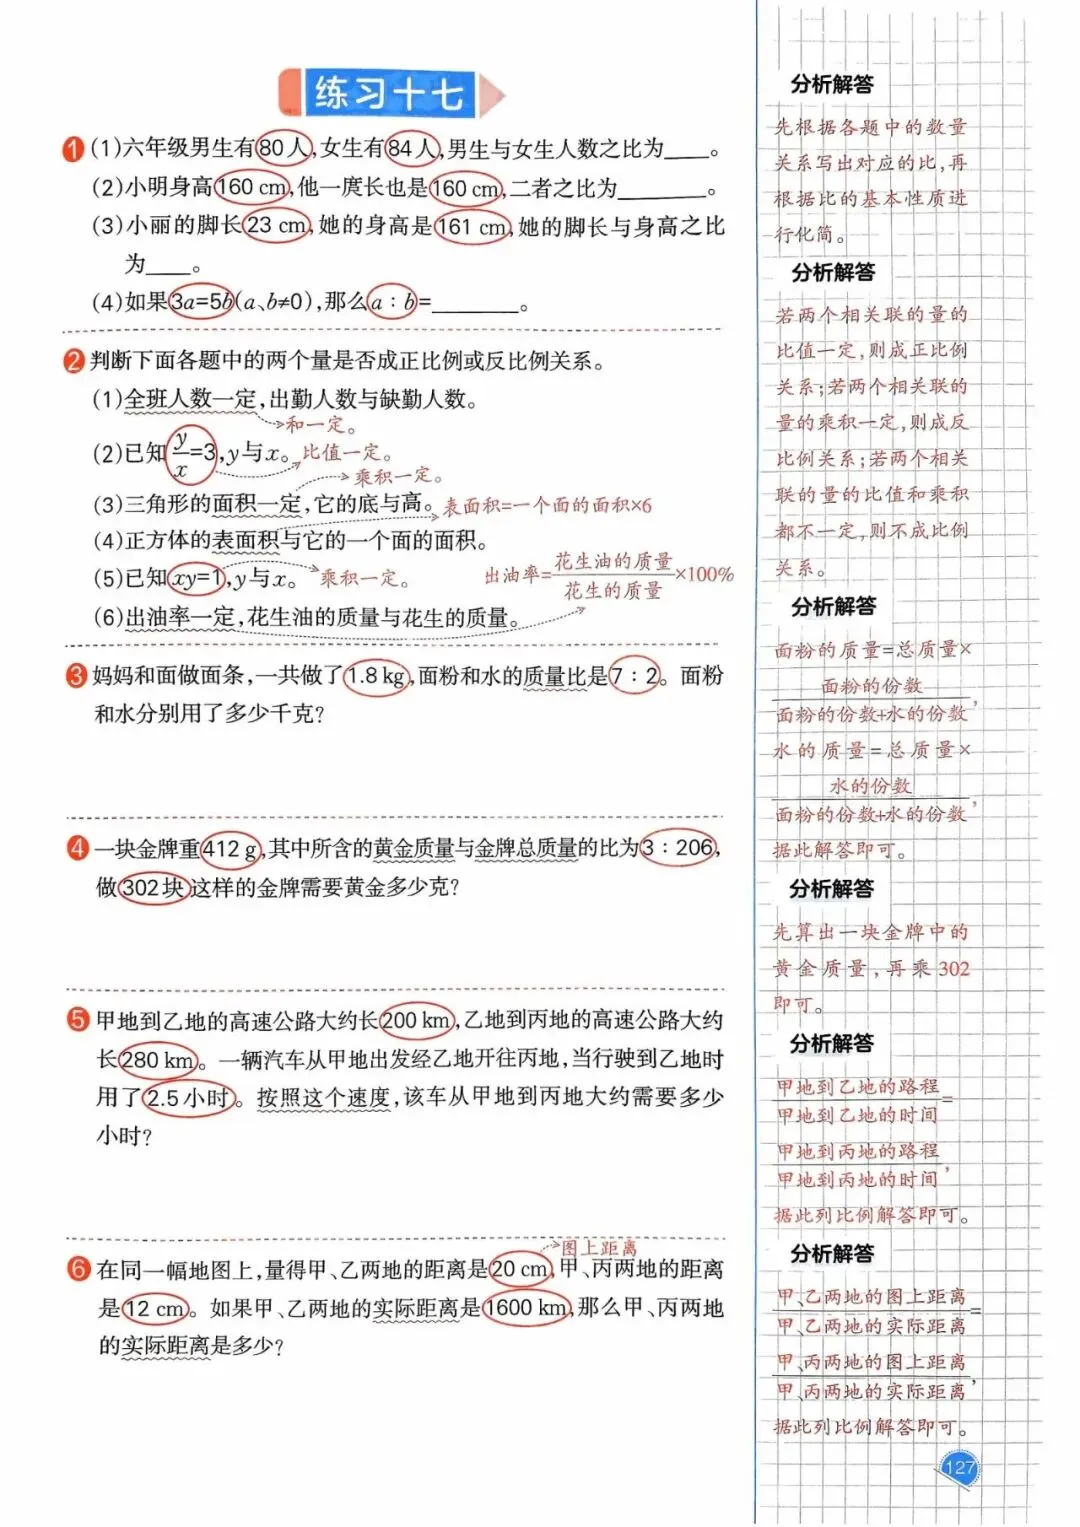 练习十七
1 (1)六年级男生有80人,女生有84人,男生与女生人数之比为____。
(2)小明身高160 cm,他一庹长也是160 cm,二者之比为________。
(3)小丽的脚长23 cm,她的身高是161 cm,她的脚长与身高之比
为____。
(4)如果3a=5b(a、b≠0),那么a:b=________。
2 判断下面各题中的两个量是否成正比例或反比例关系。
(1)全班人数一定,出勤人数与缺勤人数。
和一定。
(2)已知y/x=3,y与x。比值一定。
乘积一定。
(3)三角形的面积一定,它的底与高。表面积=一个面的面积×6
(4)正方体的表面积与它的一个面的面积。
(5)已知xy=1,y与x。乘积一定。 出油率=花生油的质量/花生的质量×100%
(6)出油率一定,花生油的质量与花生的质量。
3 妈妈和面做面条,一共做了1.8 kg,面粉和水的质量比是7:2。面粉
和水分别用了多少千克?
4 一块金牌重412 g,其中所含的黄金质量与金牌总质量的比为3:206,
做302块这样的金牌需要黄金多少克?
5 甲地到乙地的高速公路大约长200 km,乙地到丙地的高速公路大约
长280 km。一辆汽车从甲地出发经乙地开往丙地,当行驶到乙地时
用了2.5小时。按照这个速度,该车从甲地到丙地大约需要多少
小时?
图上距离
6 在同一幅地图上,量得甲、乙两地的距离是20 cm,甲、丙两地的距离
是12 cm。如果甲、乙两地的实际距离是1600 km,那么甲、丙两地
的实际距离是多少?
分析解答
先根据各题中的数量
关系写出对应的比,再
根据比的基本性质进
行化简。
分析解答
若两个相关联的量的
比值一定,则成正比例
关系;若两个相关联的
量的乘积一定,则成反
比例关系;若两个相关
联的量的比值和乘积
都不一定,则不成比例
关系。
分析解答
面粉的质量=总质量×
面粉的份数
面粉的份数+水的份数,
水的质量=总质量×
水的份数
面粉的份数+水的份数,
据此解答即可。
分析解答
先算出一块金牌中的
黄金质量,再乘302
即可。
分析解答
甲地到乙地的路程
甲地到乙地的时间=
甲地到丙地的路程
甲地到丙地的时间,
据此列比例解答即可。
分析解答
甲、乙两地的图上距离
甲、乙两地的实际距离=
甲、丙两地的图上距离
甲、丙两地的实际距离,
据此列比例解答即可。
127